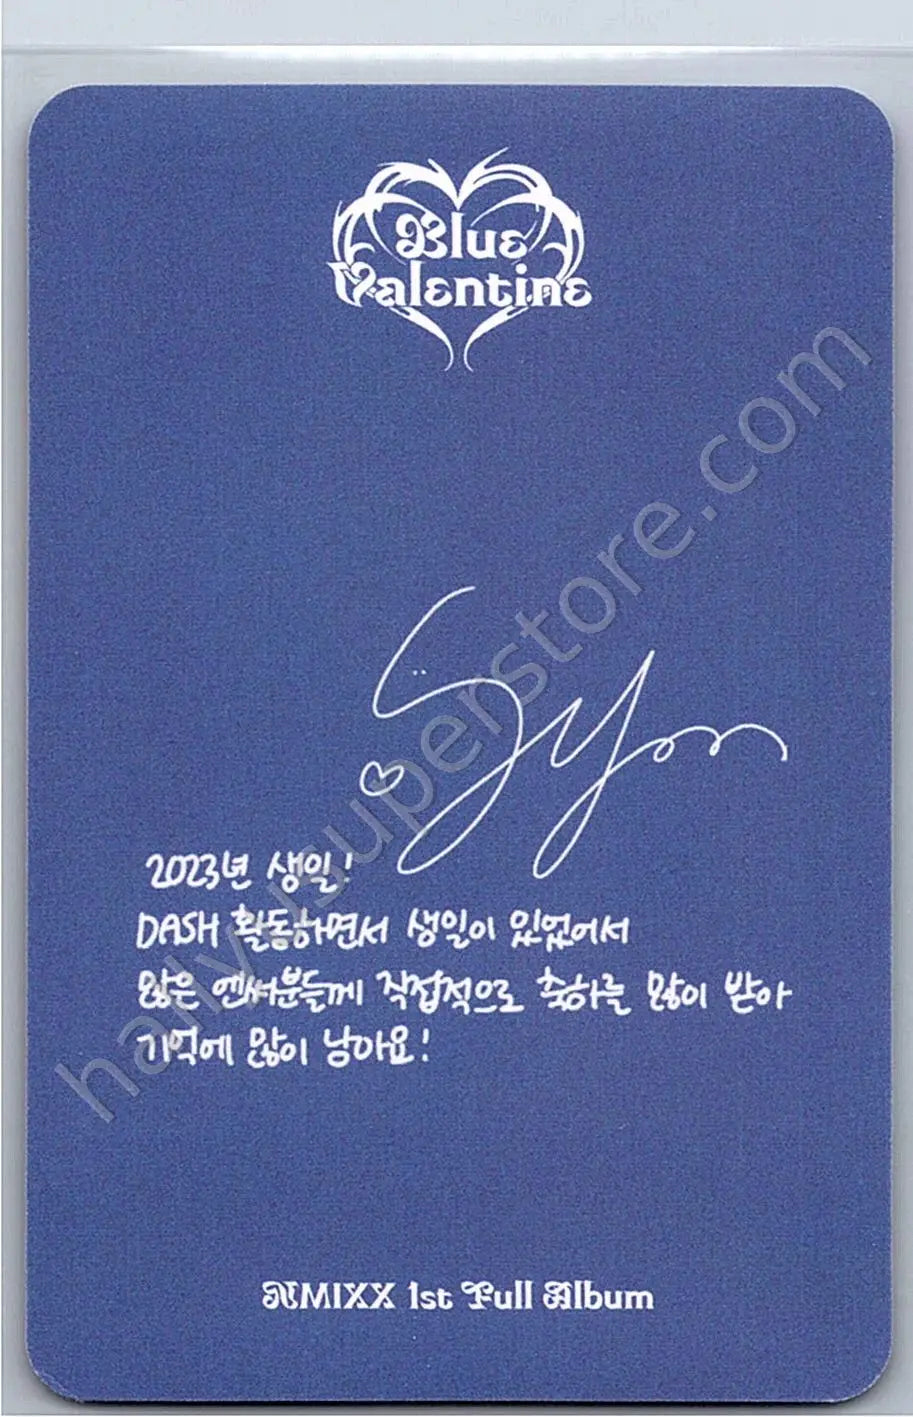 Blue
Valentine
Syoon
2023년 생일!
DASH 활동하면서 생일이 있었어서
많은 엔써분들께 직접적으로 축하를 많이 받아
기억에 많이 남아요!
NMIXX 1st Full Album
hallyusuperstore.com